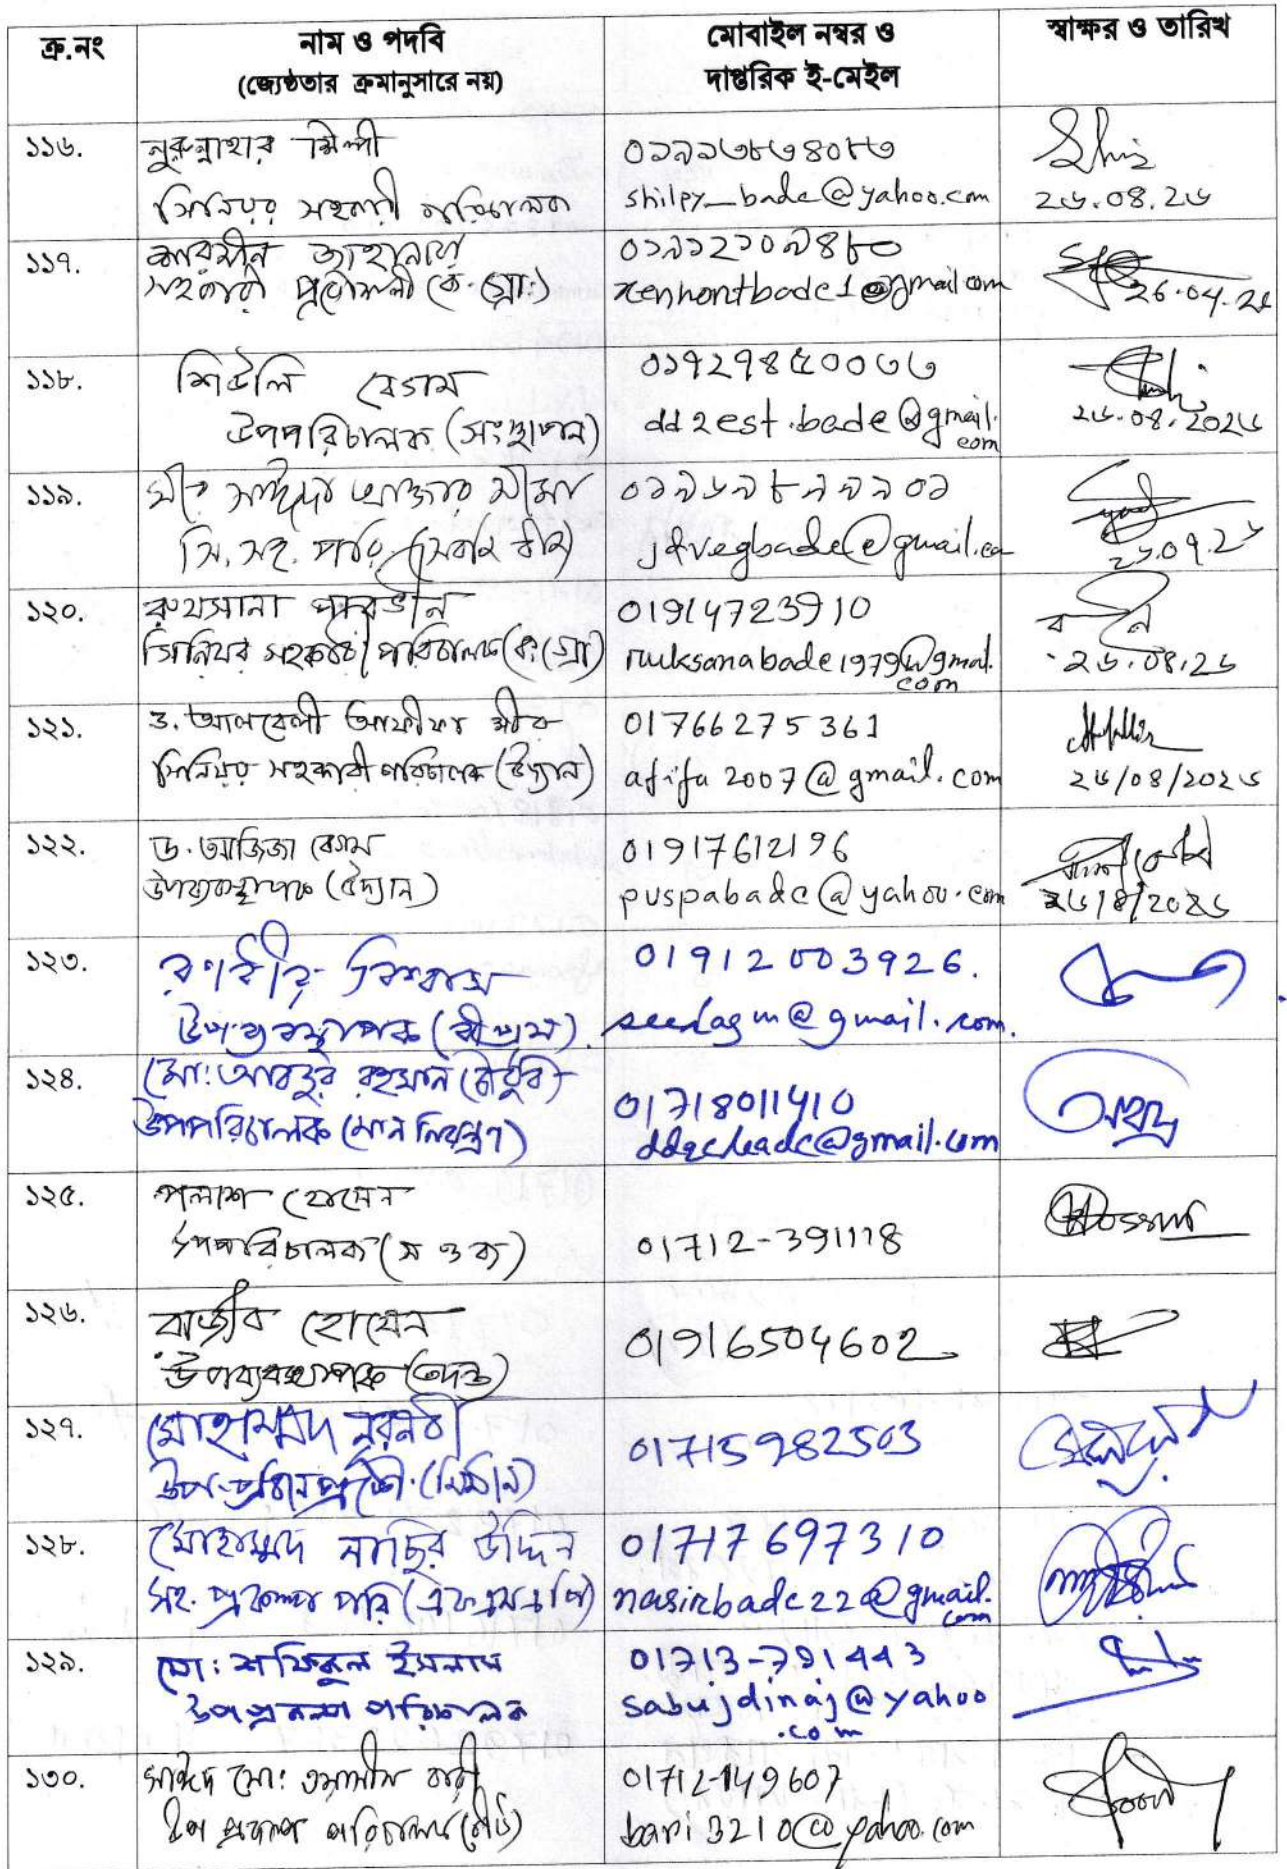 ক্র.নং
নাম ও পদবি
(জ্যেষ্ঠতার ক্রমানুসারে নয়)
মোবাইল নম্বর ও
দাপ্তরিক ই-মেইল
স্বাক্ষর ও তারিখ
১১৬.
নুরুন্নাহার শিল্পী
সিনিয়র সহকারী পরিচালক
shilpy_badc@yahoo.com
২৬.০৪.২৬
১১৭.
জাহানারা
সহকারী প্রকৌশলী
26.04.26
১১৮.
শিউলি বেগম
উপপরিচালক (সংস্থাপন)
০১৭২৭৪৫০০৩৩
dd2est.badc@gmail.
com
২৬.০৪.২০২৬
১১৯.
সি. সহ. পরি.
jdvegbadc@gmail.co
১২০.
রুখসানা পারভীন
সিনিয়র সহকারী পরিচালক
01914723910
ruksanabadc1979@gmail.
com
২৬.০৪.২৬
১২১.
ড. আলবেলী আফীফা মীর
সিনিয়র সহকারী পরিচালক (উদ্যান)
01766275361
afifa2007@gmail.com
২৬/০৪/২০২৬
১২২.
ড. আজিজা বেগম
উপব্যবস্থাপক (উদ্যান)
01917612196
puspabadc@yahoo.com
২৬/৪/২০২৬
১২৩.
রণবীর বিশ্বাস
উপ-ব্যবস্থাপক
01912003926.
seedagm@gmail.com.
১২৪.
মো: আবদুর রহমান চৌধুরী
উপপরিচালক (মান নিয়ন্ত্রণ)
01718011410
ddqcbadc@gmail.com
১২৫.
পলাশ হোসেন
উপপরিচালক (স ও ক)
01712-391118
১২৬.
রাজীব হোসেন
উপব্যবস্থাপক (তদন্ত)
01916504602
১২৭.
মোহাম্মদ নুরনবী
উপ-প্রধান প্রকৌ. (নির্মাণ)
01715982503
১২৮.
মোহাম্মদ নাছির উদ্দিন
সহ. প্রকল্প পরি
01717697310
nasirbadc22@gmail.
com
১২৯.
মো: শফিকুল ইসলাম
উপ প্রকল্প পরিচালক
01713-791443
sabujdinaj@yahoo
.com
১৩০.
সাঈদ মো:
উপ প্রকল্প পরিচালক
01712-149607
bari3210@yahoo.com